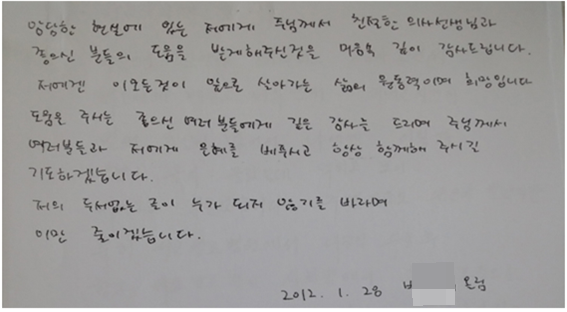 암담한 현실에 있는 저에게 주님께서 친절한 의사선생님과
좋으신 분들의 도움을 받게해주신것을 마음속 깊이 감사드립니다.
저에겐 이모든것이 앞으로 살아가는 삶의 원동력이며 희망입니다
도움을 주시는 좋으신 여러분들에게 깊은 감사를 드리며 주님께서
여러분들과 저에게 은혜를 베푸시고 항상 함께해 주시길
기도하겠습니다.
저의 두서없는 글이 누가 되지 않기를 바라며
이만 줄이겠습니다.
2012. 1. 28 올림